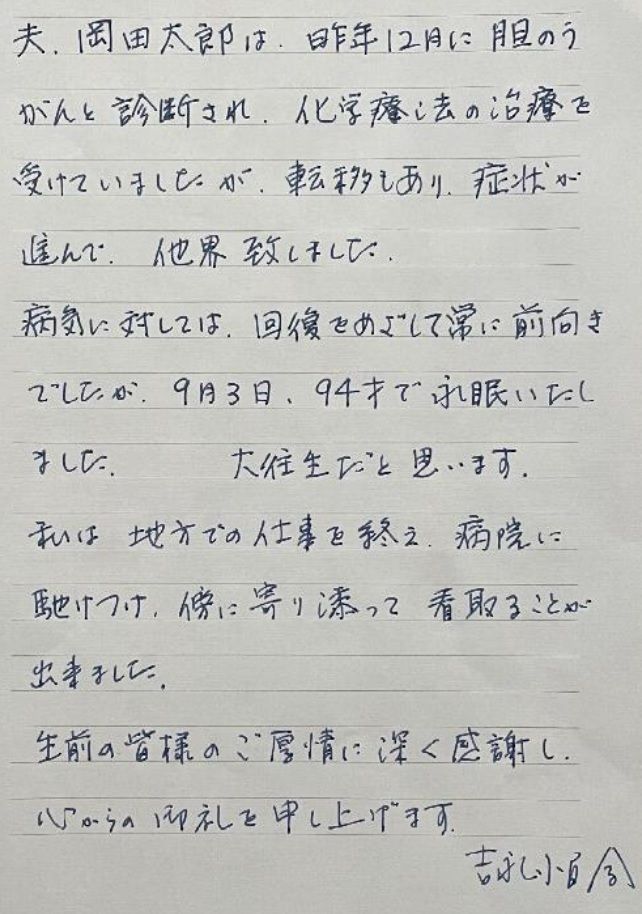 夫、岡田太郎は、昨年12月に胆のう
がんと診断され、化学療法の治療を
受けていましたが、転移もあり、症状が
進んで、他界致しました。
病気に対しては、回復をめざして常に前向き
でしたが、9月3日、94才で永眠いたし
ました。 大往生だと思います。
私は地方での仕事を終え、病院に
馳けつけ、傍に寄り添って看取ることが
出来ました。
生前の皆様のご厚情に深く感謝し、
心からの御礼を申し上げます。
吉永小百合